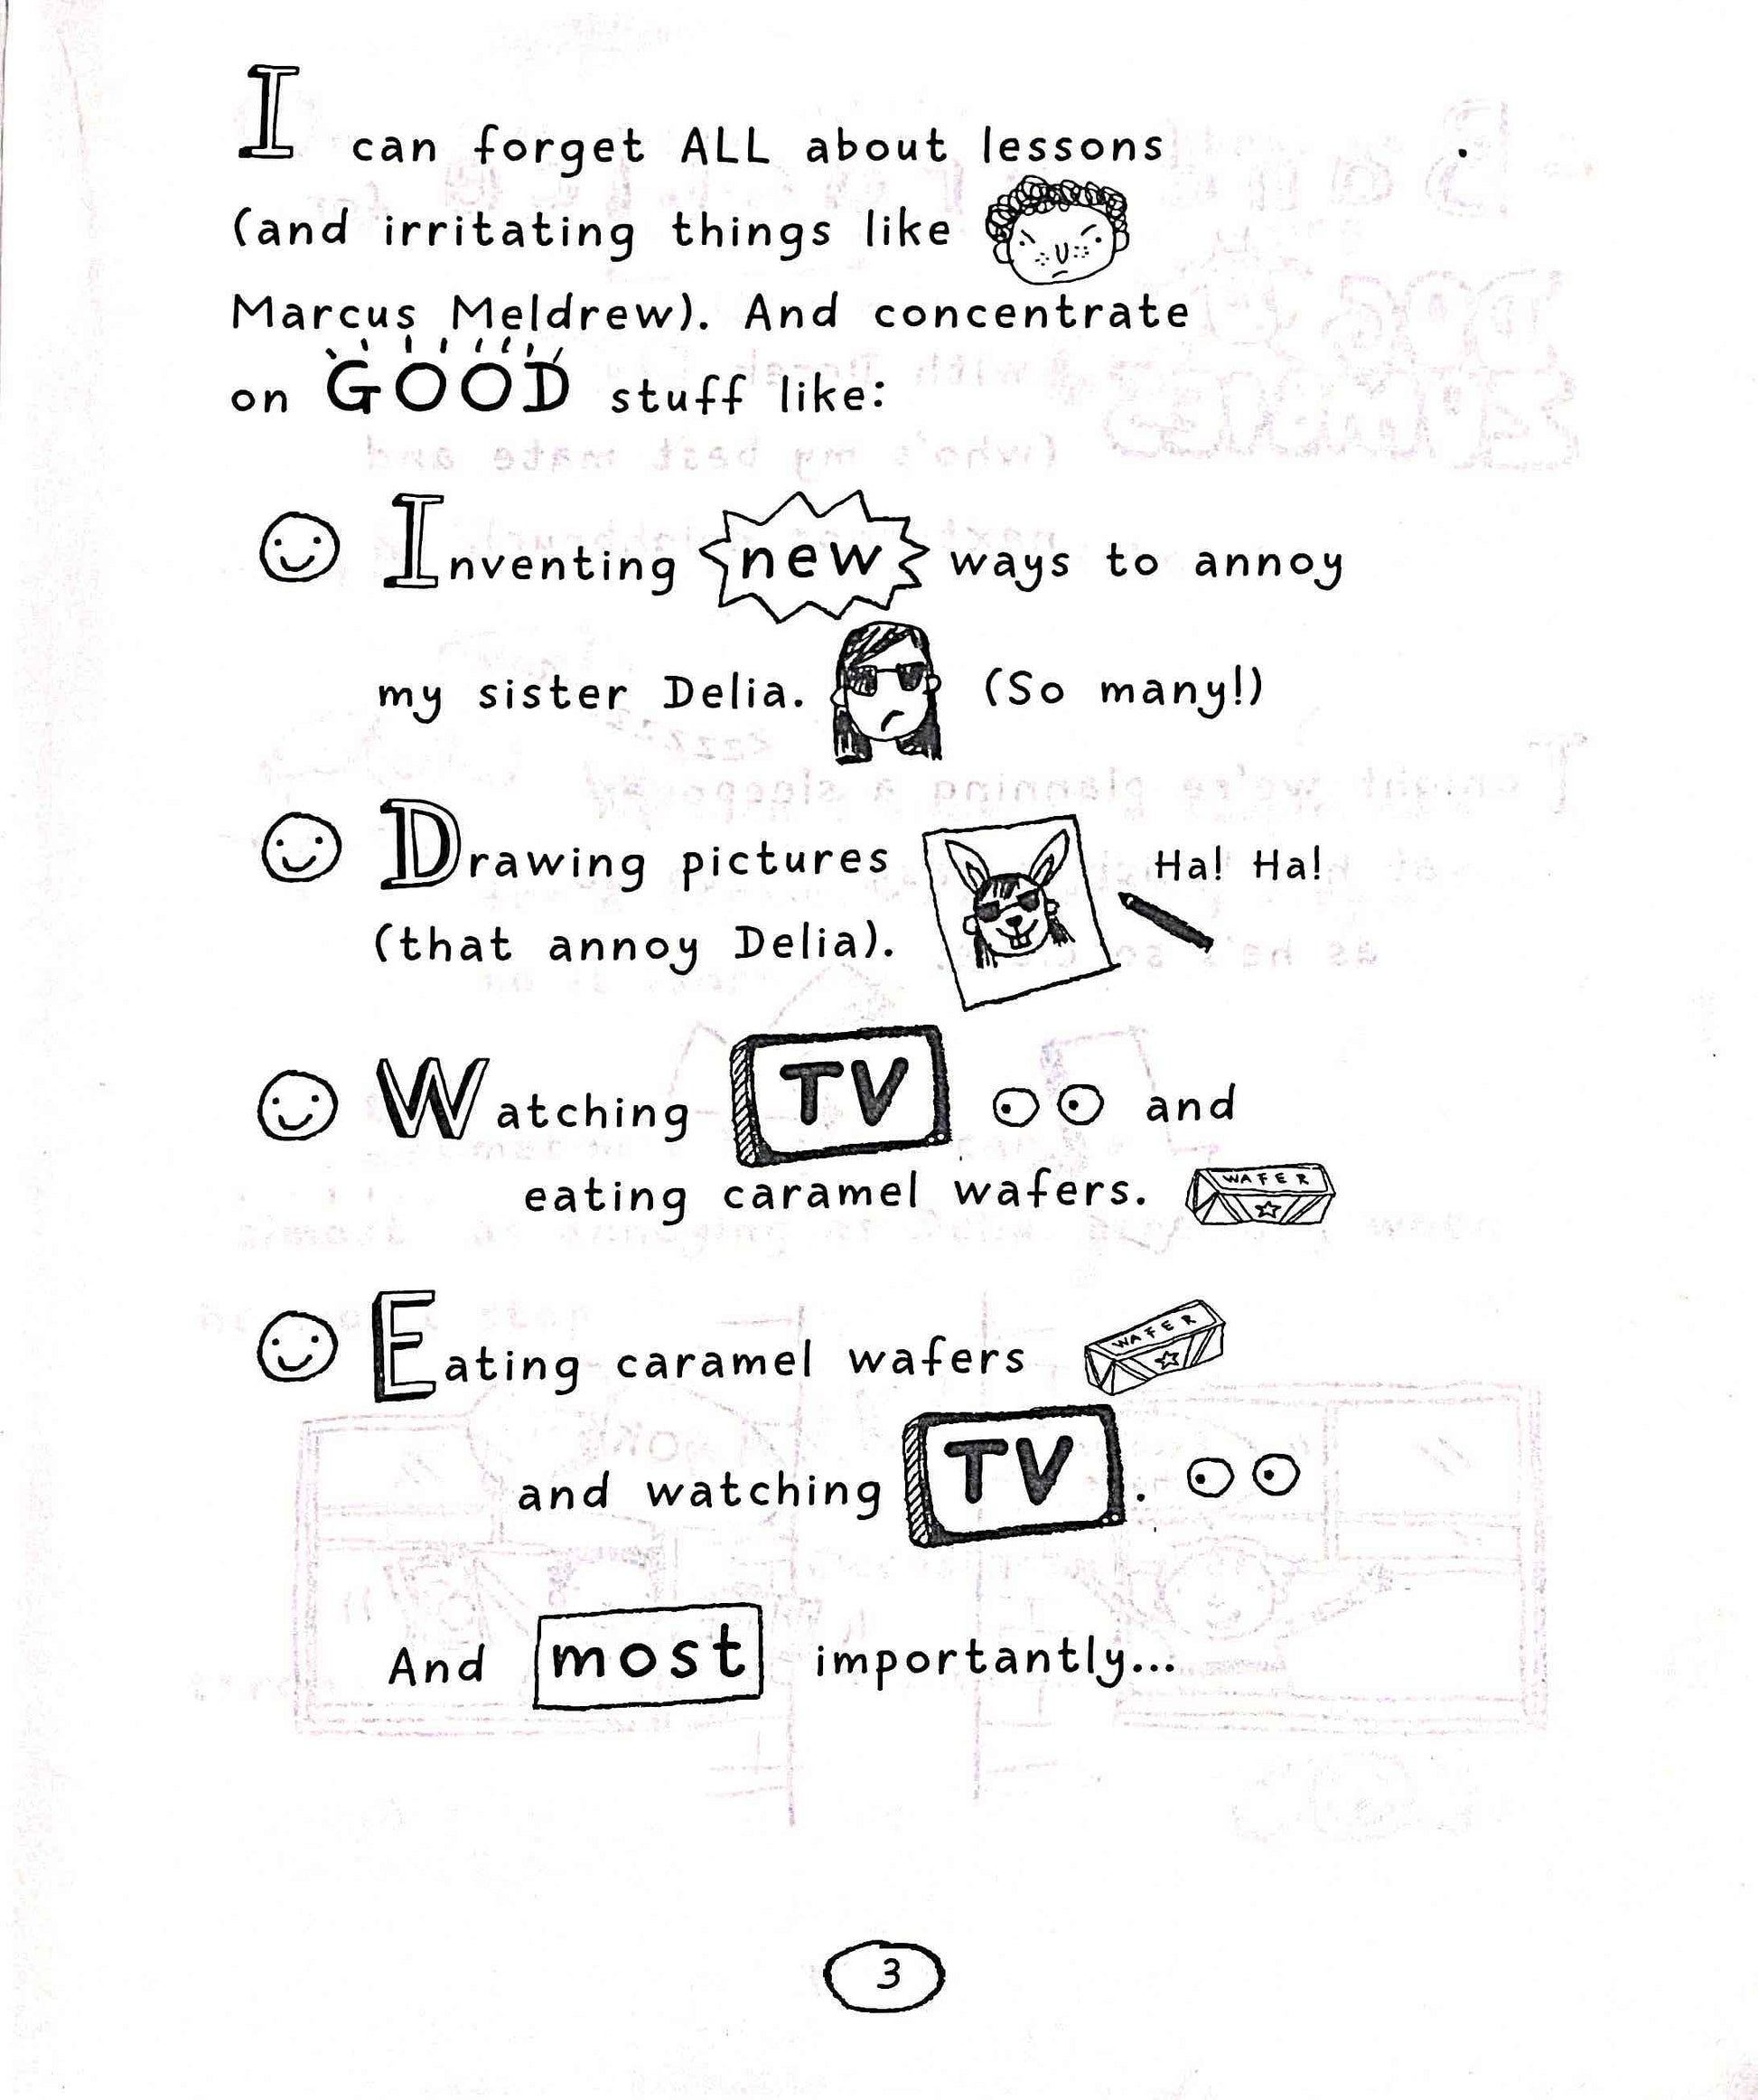 I can forget ALL about lessons
(and irritating things like
Marcus Meldrew). And concentrate
on GOOD stuff like:
Inventing new ways to annoy
my sister Delia. (So many!)
Drawing pictures Ha! Ha!
(that annoy Delia).
Watching TV and
eating caramel wafers. WAFER
Eating caramel wafers WAFER
and watching TV.
And most importantly...
3